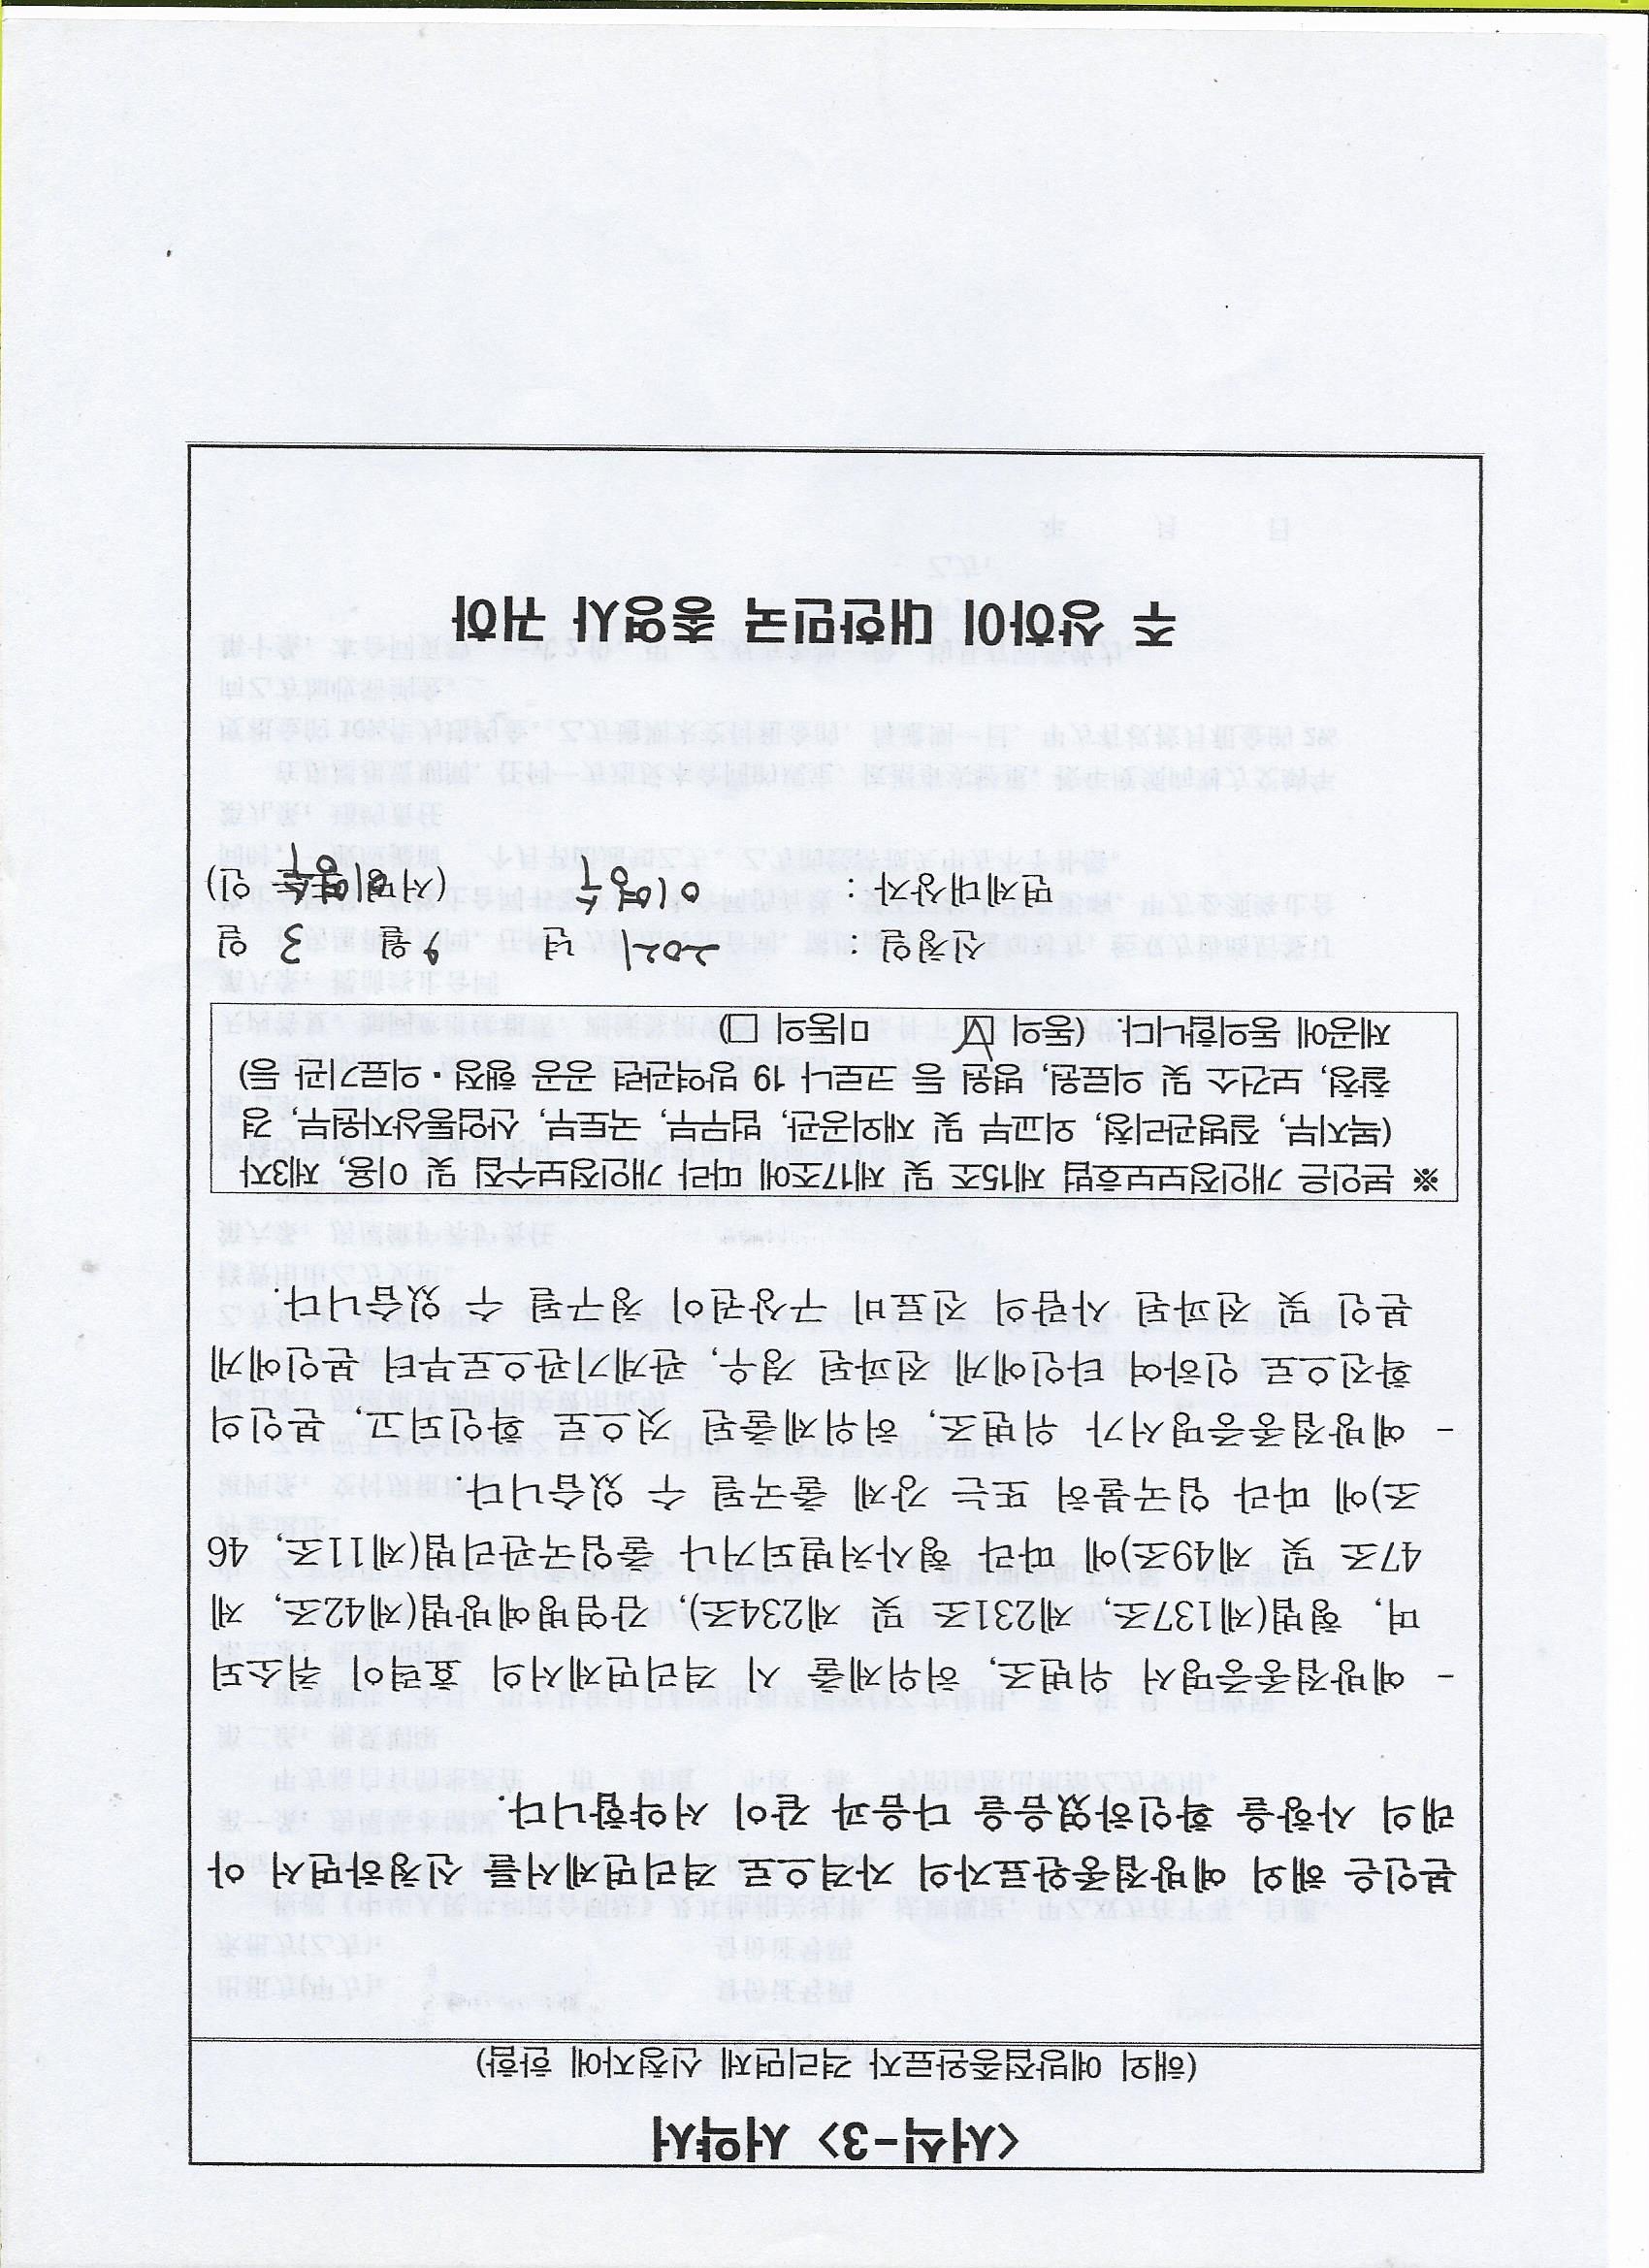 <서식-3> 서약서
(해외 예방접종완료자 격리면제 신청자에 한함)
본인은 해외 예방접종완료자의 자격으로 격리면제서를 신청하면서 아
래의 사항을 확인하였음을 다음과 같이 서약합니다.
- 예방접종증명서 위변조, 허위제출 시 격리면제서의 효력이 취소되
며, 형법(제137조, 제231조 및 제234조), 감염병예방법(제42조, 제
47조 및 제49조)에 따라 형사처벌되거나 출입국관리법(제11조, 46
조)에 따라 입국불허 또는 강제 출국될 수 있습니다.
- 예방접종증명서가 위변조, 허위제출된 것으로 확인되고, 본인의
확진으로 인하여 타인에게 전파된 경우, 관계기관으로부터 본인에게
본인 및 전파된 사람의 진료비 구상권이 청구될 수 있습니다.
※ 본인은 개인정보보호법 제15조 및 제17조에 따라 개인정보수집 및 이용, 제3자
(복지부, 질병관리청, 외교부 및 재외공관, 법무부, 국토부, 산업통상자원부, 경
찰청, 보건소 및 의료원, 병원 등 코로나 19 방역관련 공공 행정·의료기관 등)
제공에 동의합니다. (동의 ☑ 미동의 □)
신청일 : 2021 년 9 월 3 일
면제대상자 : 이영수 (서명 또는 인) 이영수
주 상하이 대한민국 총영사 귀하